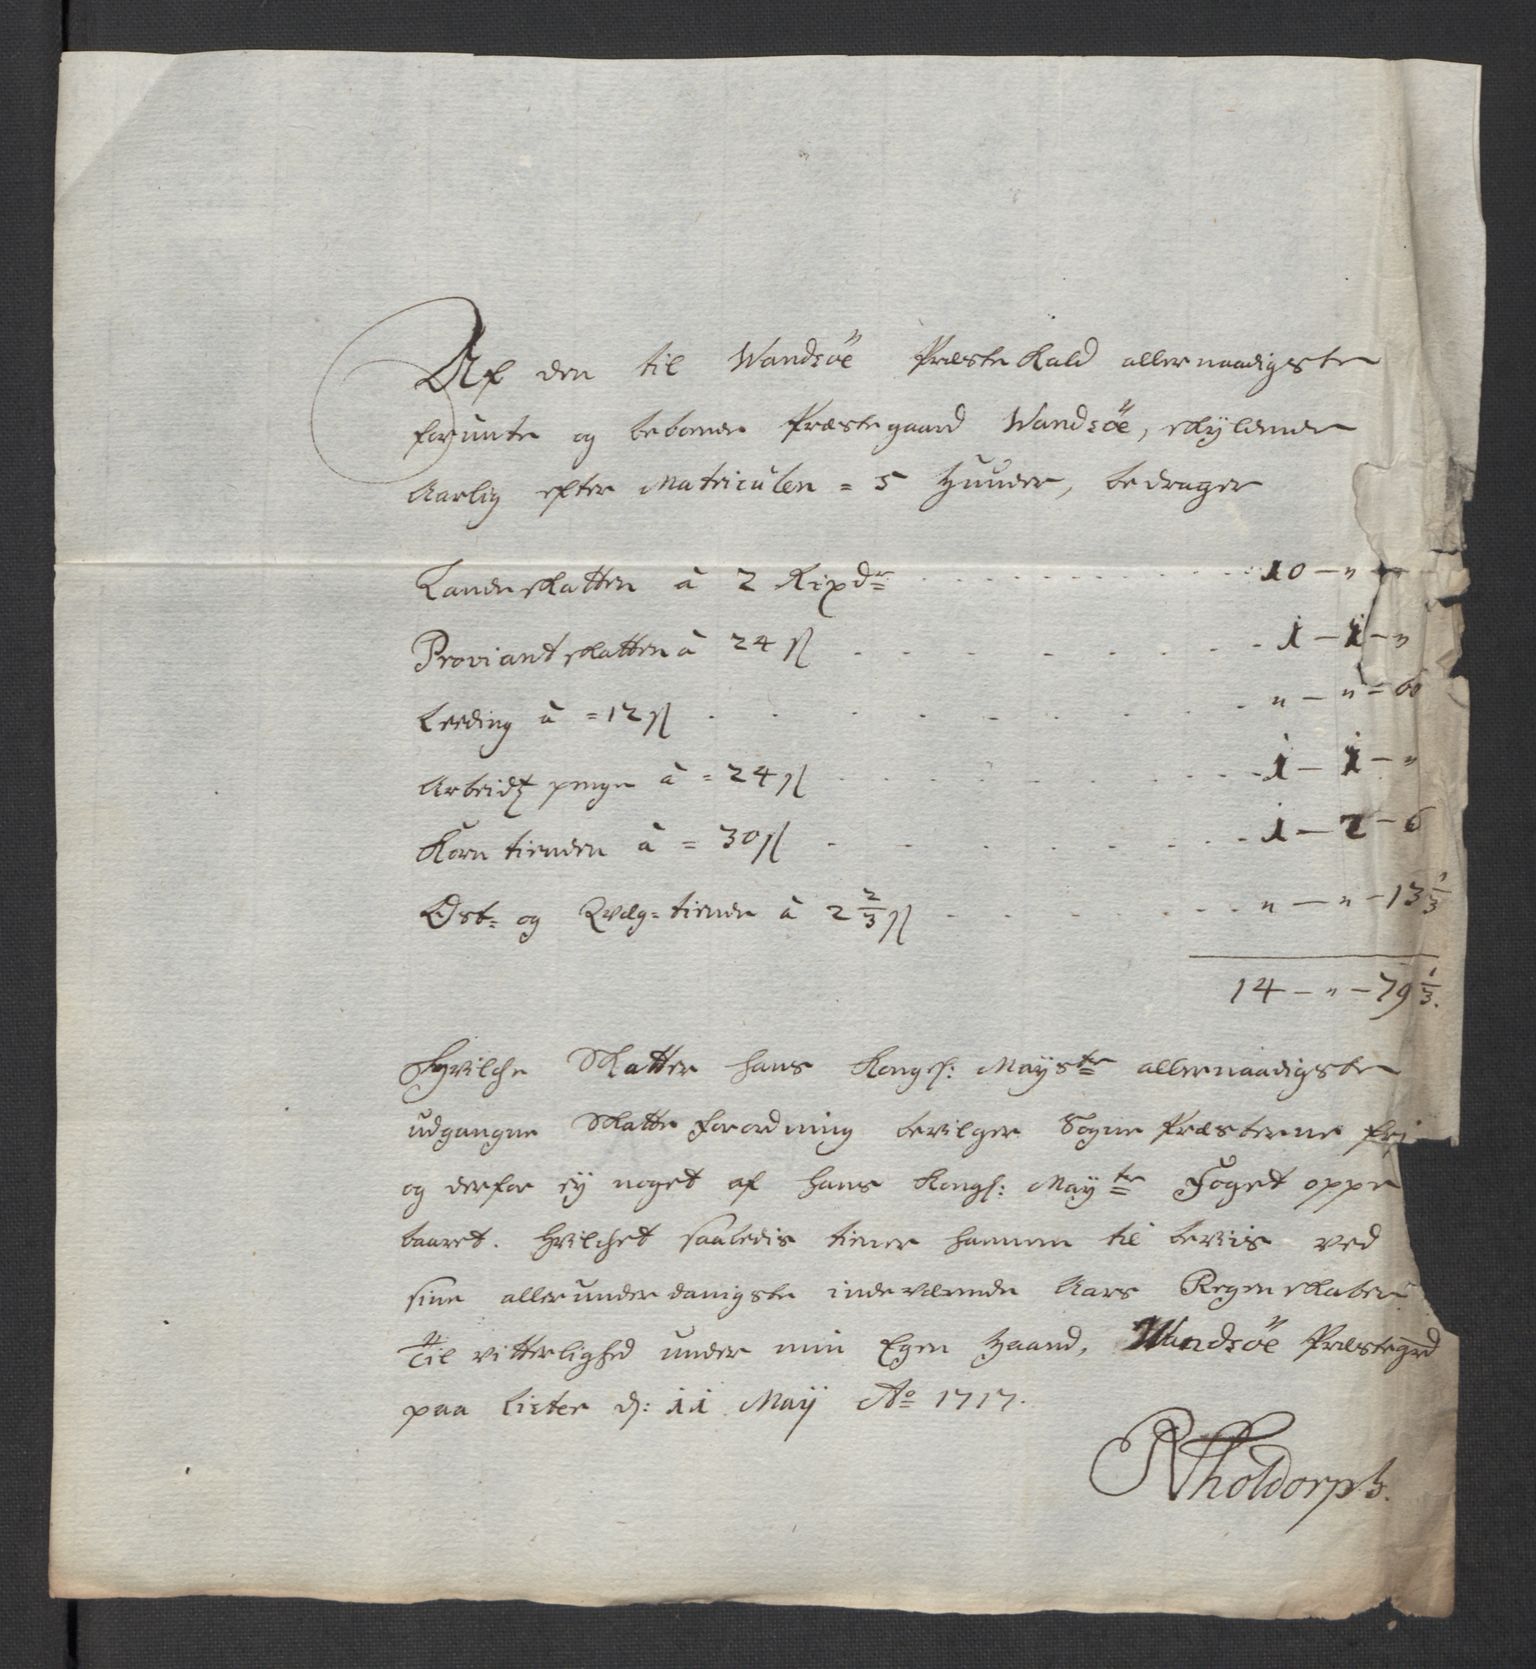 Af den til Wandsöe Præste Kald allernaadigste
forunte og beboende Præstegaard Wandsöe, skÿldende
Aarlig efter Matriculen = 5 Huuder, bedrager
Landskatten à 2 Rixdr . . . 10 – „ –
Proviantskatten à 24 ß . . . 1 – 1 – „
Leeding à = 12 ß . . . „ – „ – 60
Arbeidtz penge à = 24 ß . . . 1 – 1 – „
Korn tienden à = 30 ß . . . 1 – 2 – 6
Ost- og Qvæg-tiende à 2 2/3 ß . . . „ – „ – 13 1/3
14 – „ – 79 1/3.
Hvilche Skatter hans Kongl: Maÿstr allernaadigste
udgangne Skatte forordning bevilger Sogne Præsterne fri
og derfor eÿ noget af hans Kongl: Maÿtr Foget oppe
baaret. Hvilchet saaledis tiener hannem til beviis ved
sine allerunderdanigste indeværende Aars Regenskaber
Til vitterlighed under min Egen Haand, Wandsöe Præstegrd
paa Lister d: 11 Maÿ Ao 1717.
RTholdorph.